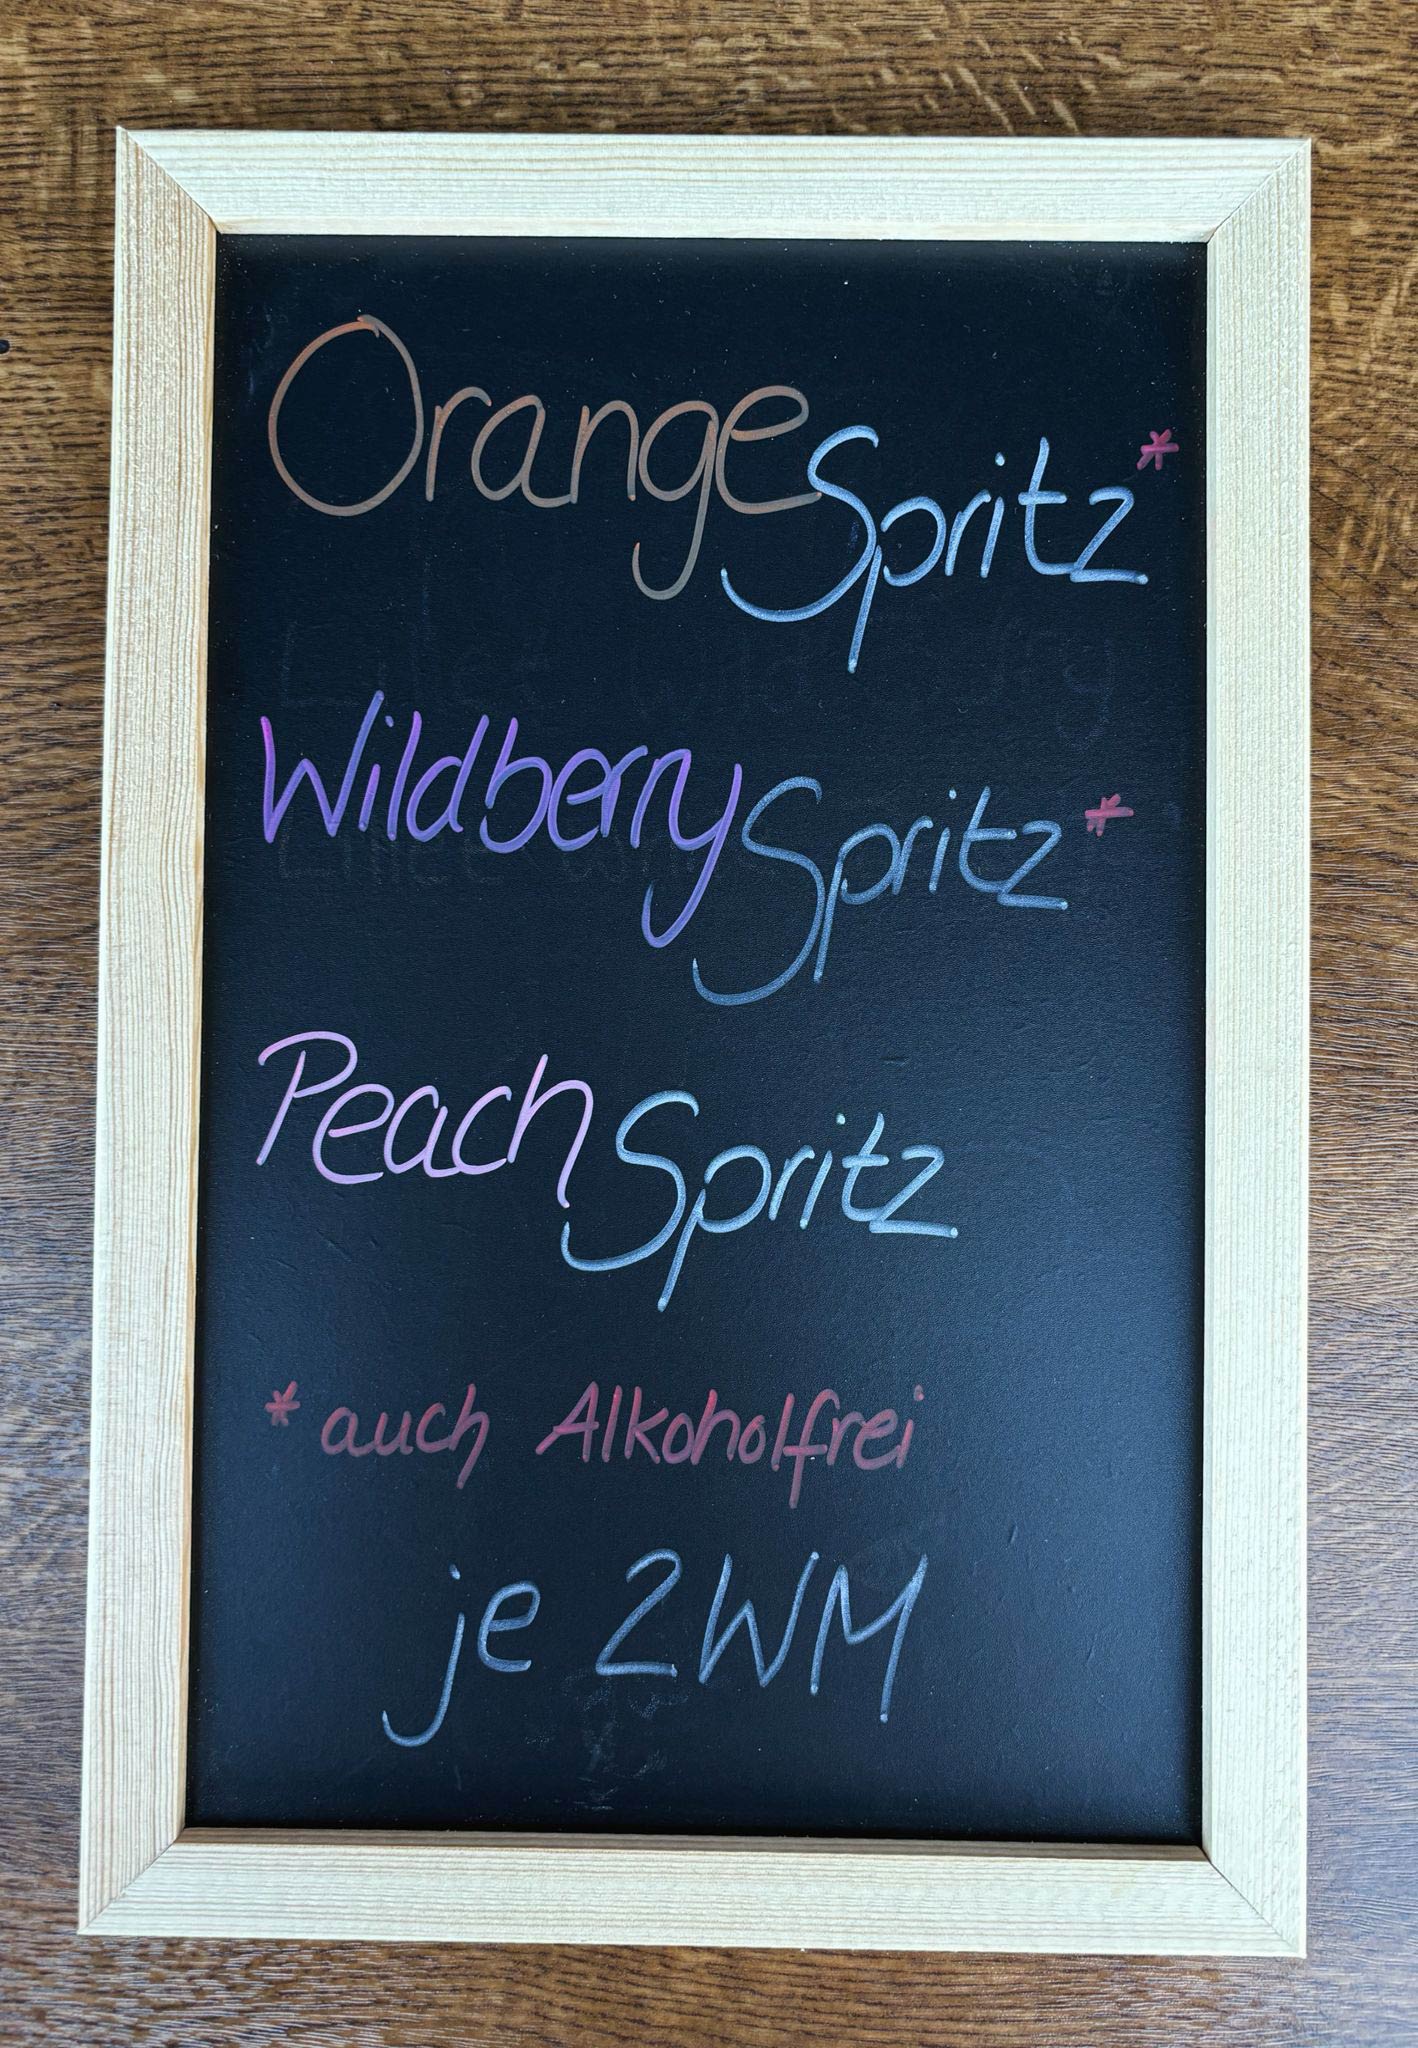 Orange Spritz*
Wildberry Spritz*
Peach Spritz
* auch Alkoholfrei
je 2WM